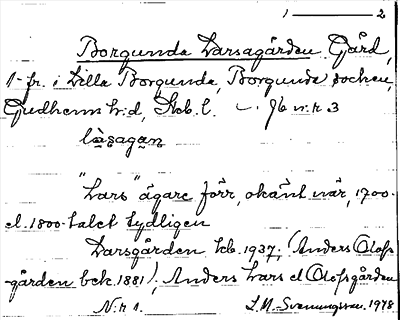 1 ——— 2
Borgunda Larsagården. Gård,
1- fr. i Lilla Borgunda, Borgunda socken,
Gudhems h:d, Skb. l. Jb nr: 3
làsagan
"Lars" ägare förr, okänt när, 1700-
el. 1800-talet tydligen
Larsgården kb. 1937, (Anders Olofs-
-gården bek. 1881), Anders Lars el Olofsgården
N:r 1. L.M. Svenungsson. 1978